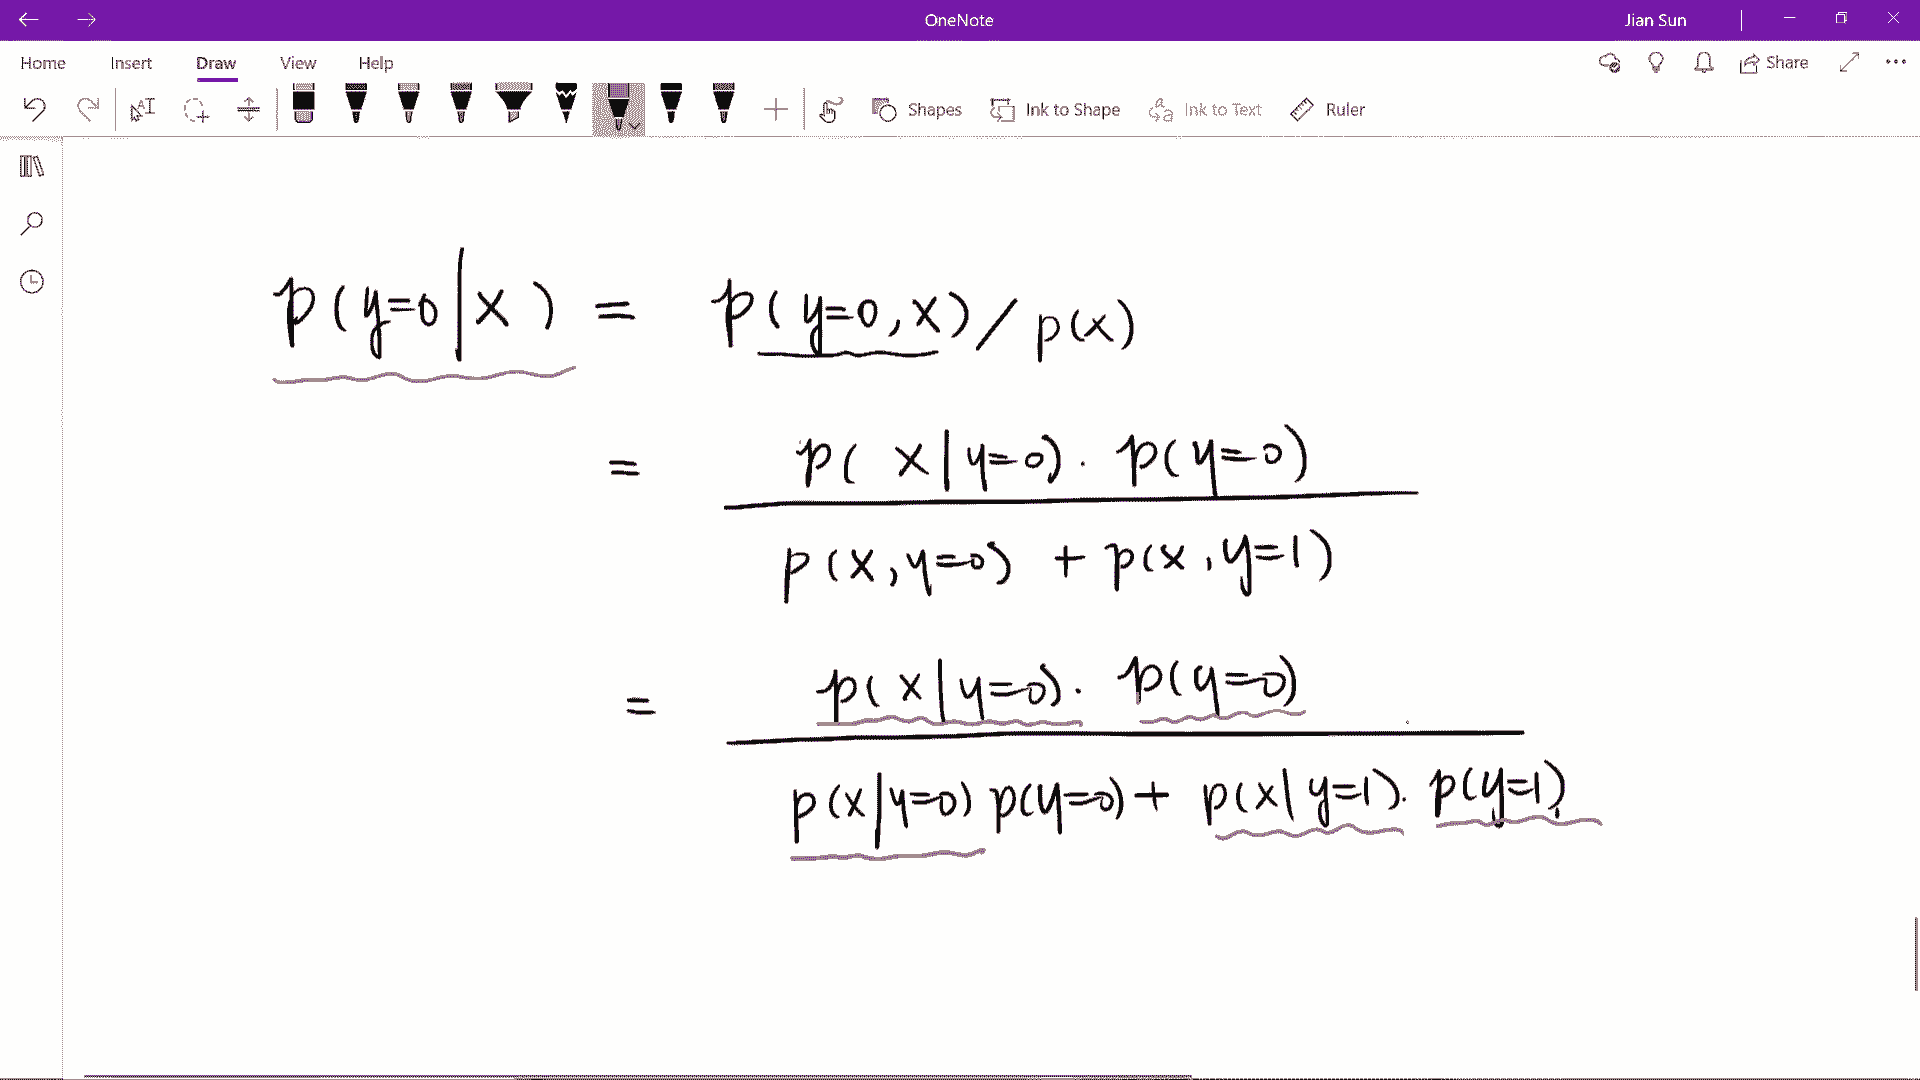 OneNote
Jian Sun
Home Insert Draw View Help
Share
Shapes Ink to Shape Ink to Text Ruler
p(y=0|x) = p(y=0,x)/p(x)
= p(x|y=0)·p(y=0)
p(x,y=0) + p(x,y=1)
= p(x|y=0)·p(y=0)
p(x|y=0)p(y=0)+p(x|y=1)·p(y=1)